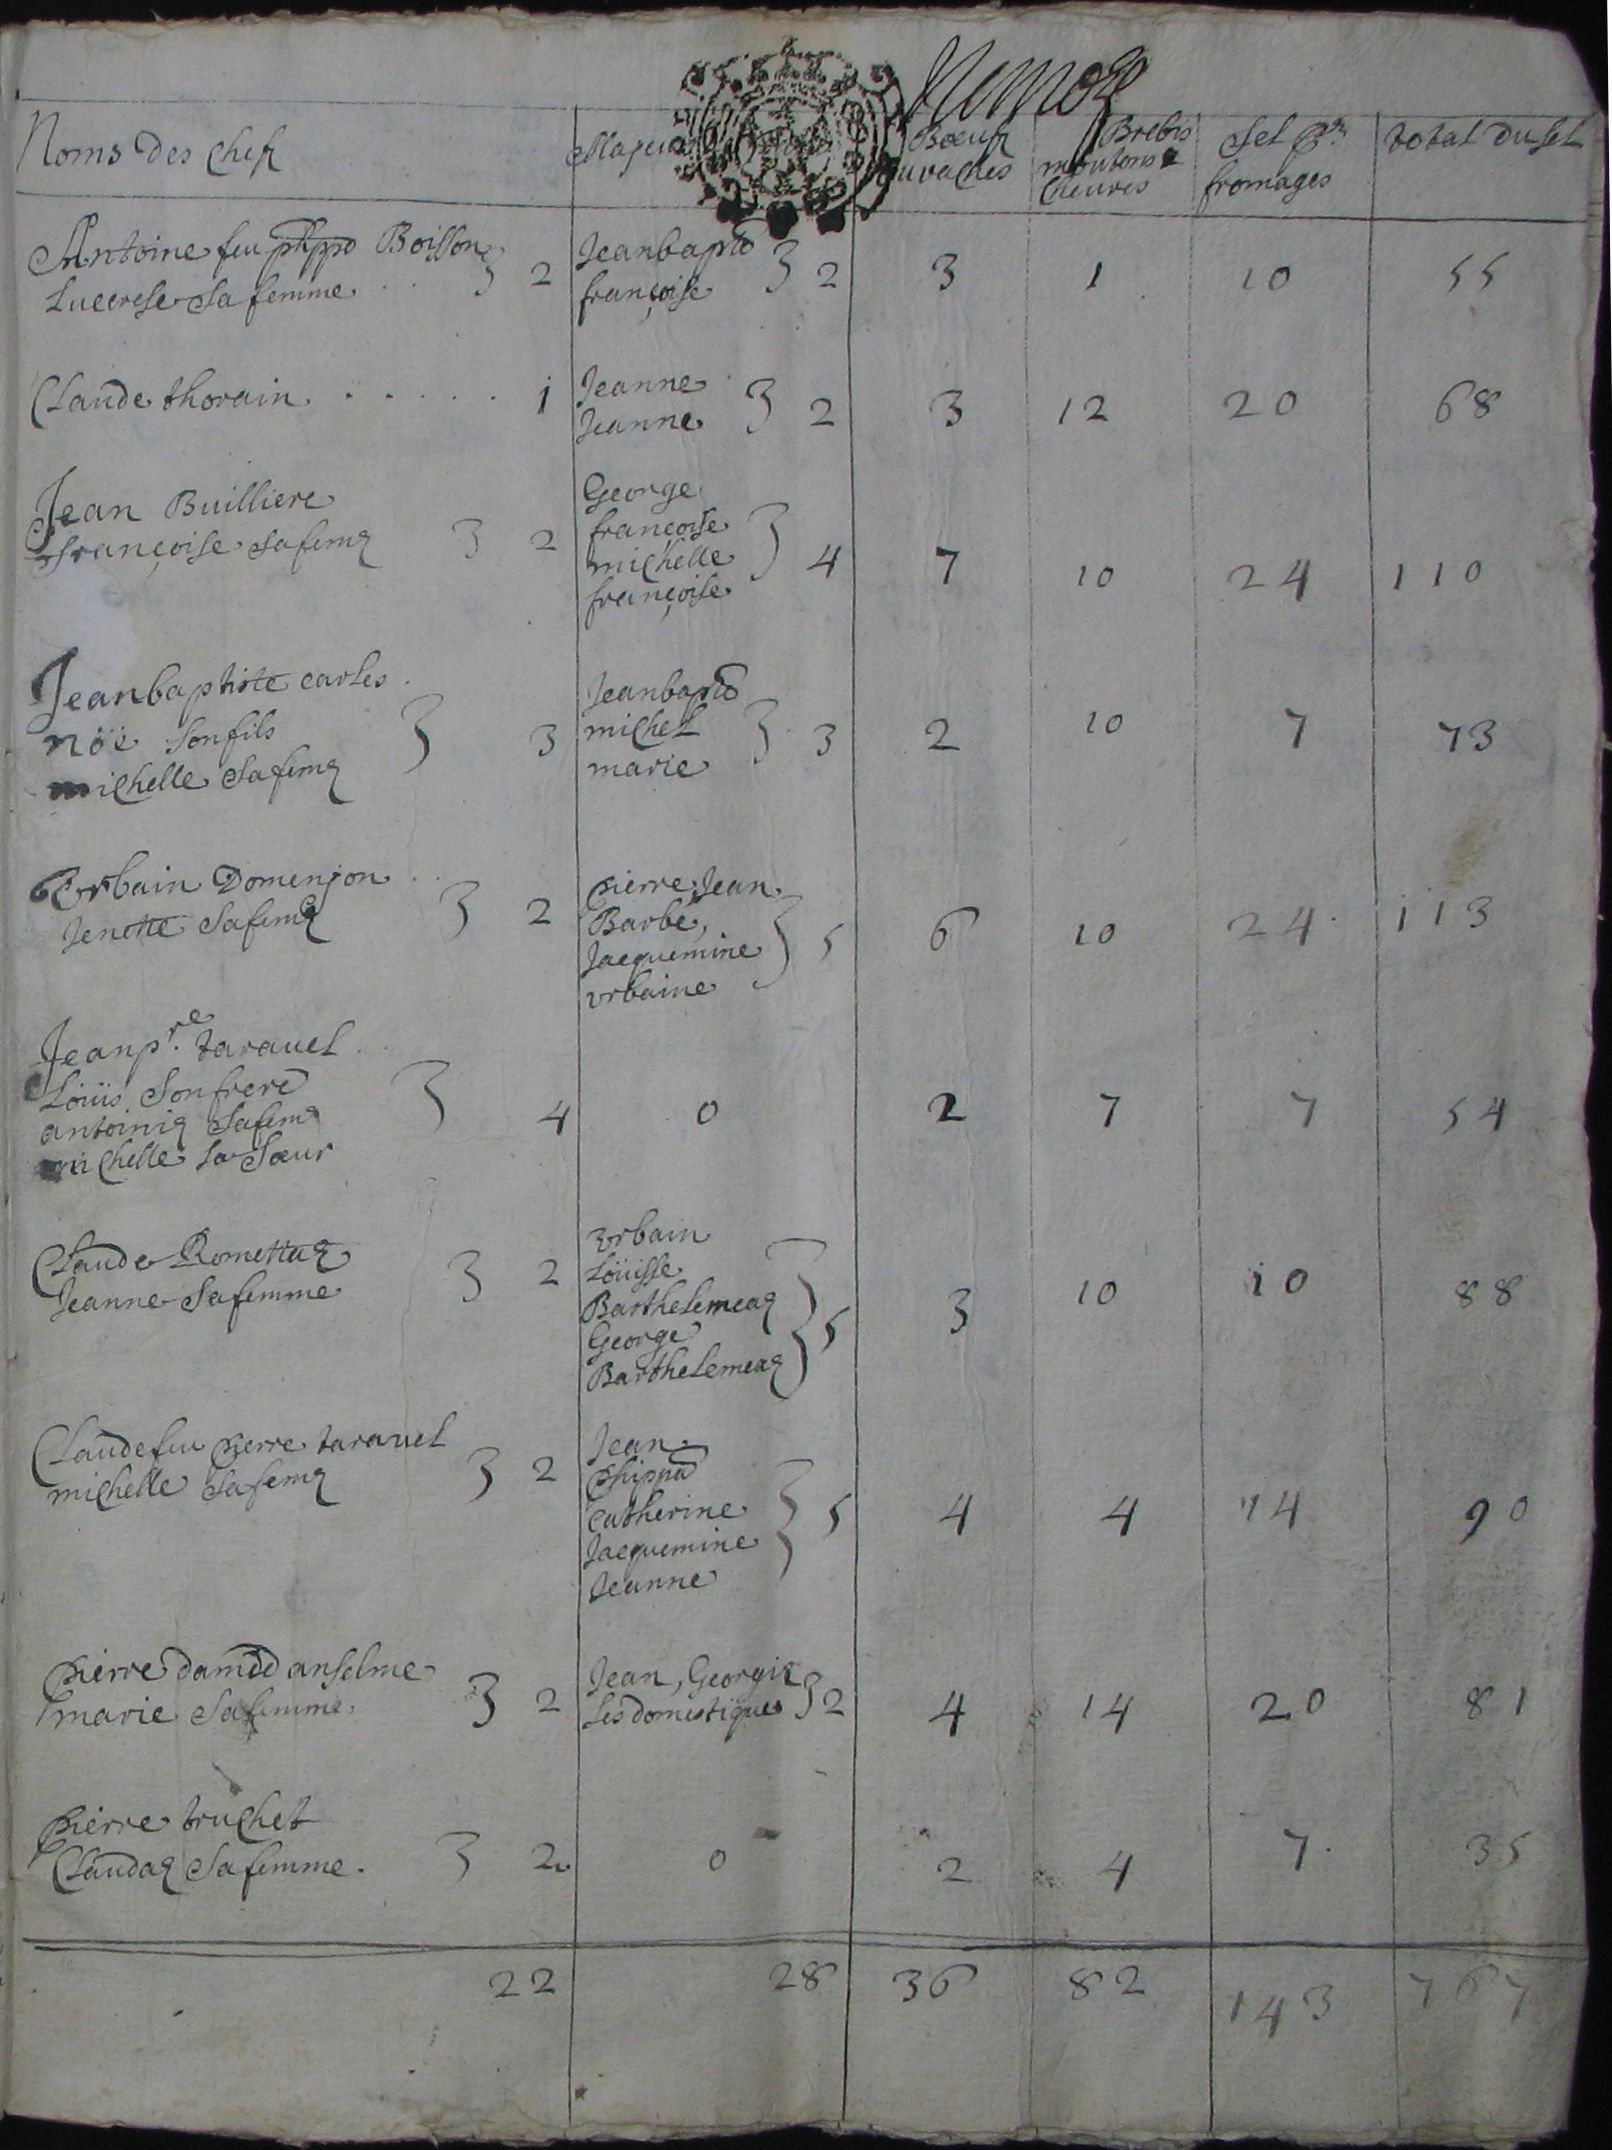 Noms des chefs
Bœufs
ou vaches
Brebis
moutons &
cheures
Sel pr
fromages
total du sel
Antoine feu phppe Boisson
Lucrese sa femme . . } 2
Jeanbapte
françoise } 2
3 1 10 55
Claude thorain . . . . . . 1
Jeanne
Jeanne } 2
3 12 20 68
Jean Buillliere
françoise sa feme } 2
George
françoise
michelle
françoise } 4
7 10 24 110
Jeanbaptiste carles
nöé son fils
michelle sa feme } 3
Jeanbapte
michel
marie } 3
2 10 7 73
Vrbain Domenjon
Jenette sa feme } 2
pierre, Jean
Barbe,
Jacquemine
vrbaine } 5
6 10 24 113
Jean pre. tarauel
Loüis son frere
antoinie sa feme
michelle sa sœur } 4
0 2 7 7 54
Claude Romettaz
Jeanne sa femme } 2
vrbain
Loüisse
Barthelemeaz
George
Barthelemeaz } 5
3 10 10 88
Claude feu pierre tarauel
michelle sa feme } 2
Jean
Phippe
catherine
Jacquemine
Jeanne } 5
4 4 14 90
pierre damed anselme
marie sa femme } 2
Jean, Georgie
ses domestiques } 2
4 14 20 81
pierre truchet
Claudaz sa femme . } 2
0 2 4 7 35
22 28 36 82 143 767